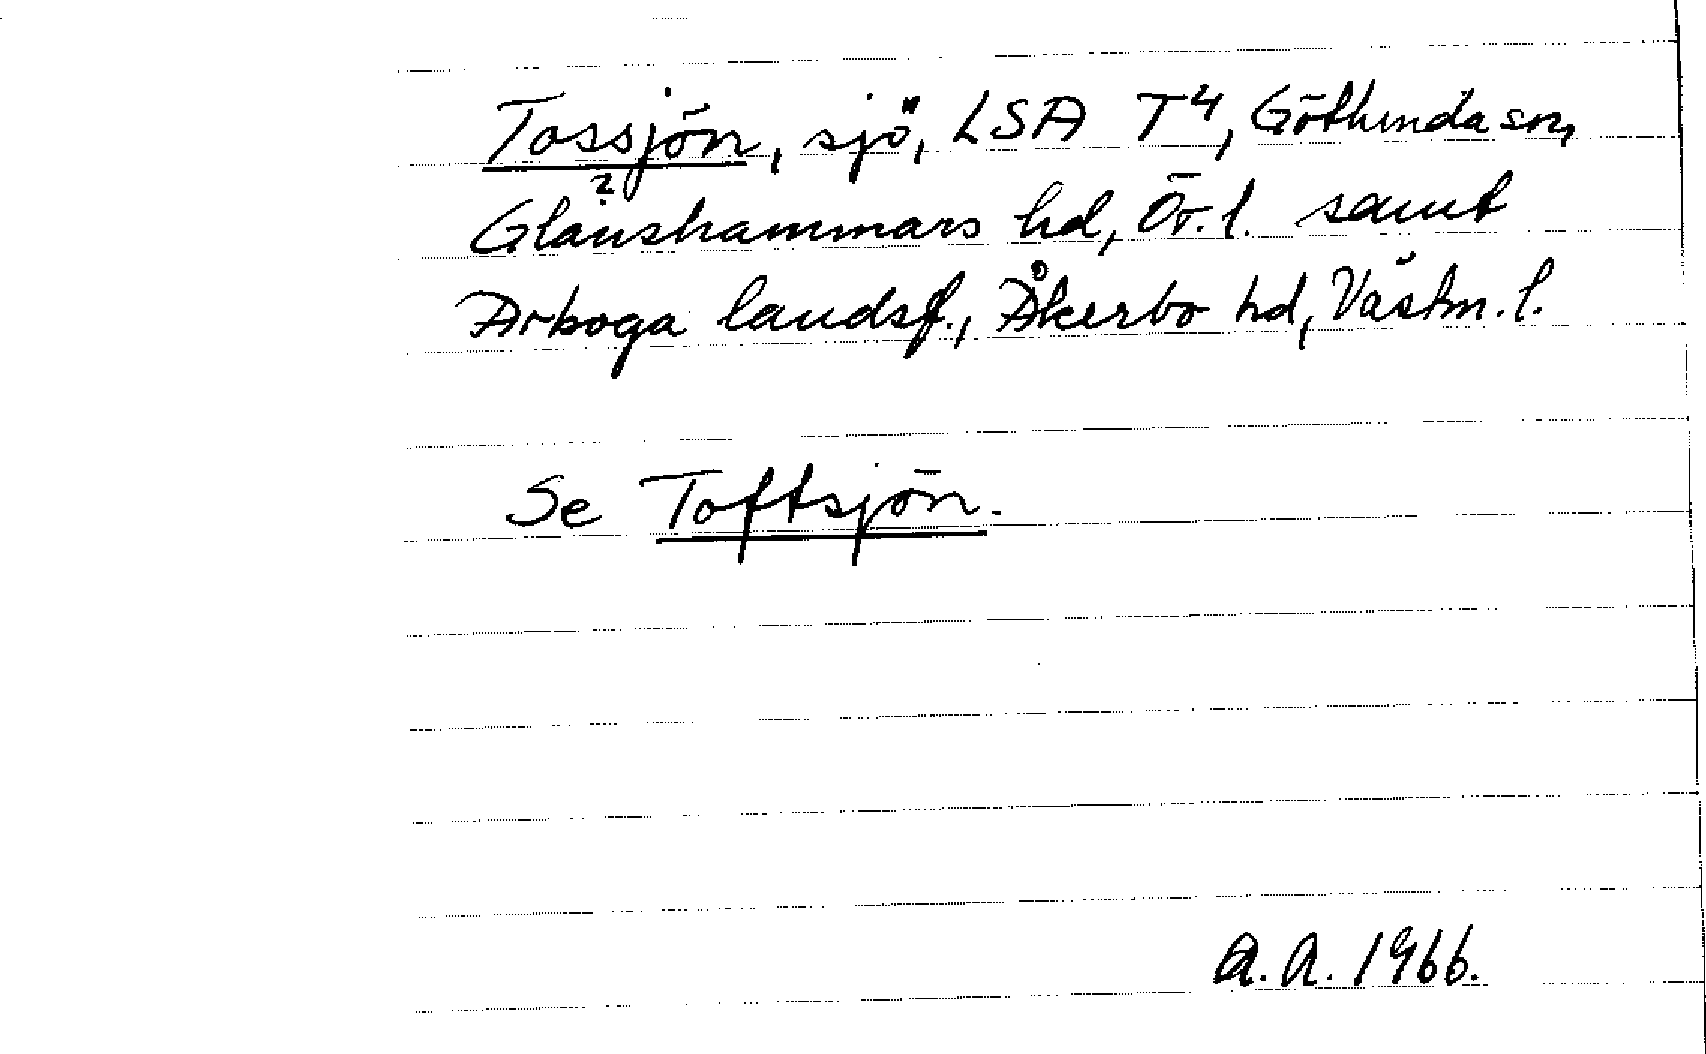 Tossjön, sjö, LSA T4, Göthlunda sn,
Glanshammars hd, Ör. l. samt
Arboga landsf., Åkerbo hd, Västm. l.
Se Toftsjön.
A. A. 1966.